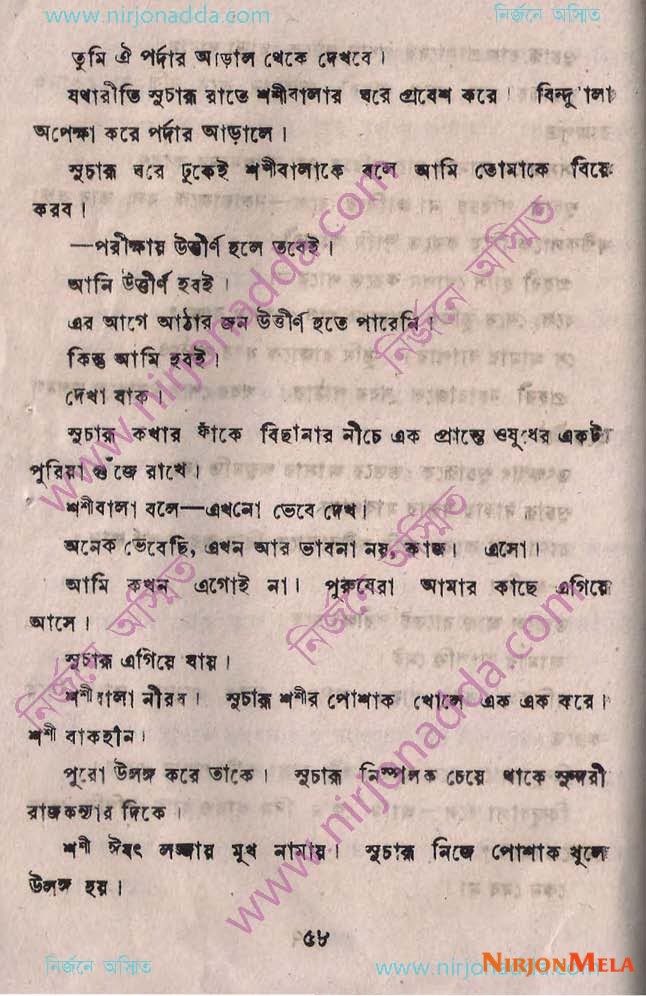 www.nirjonadda.com নির্জনে অস্মিত
তুমি ঐ পর্দার আড়াল থেকে দেখবে।
যথারীতি সুচারু রাতে শশীবালার ঘরে প্রবেশ করে। বিন্দুবালা
অপেক্ষা করে পর্দার আড়ালে।
সুচারু ঘরে ঢুকেই শশীবালাকে বলে আমি তোমাকে বিয়ে
করব।
—পরীক্ষায় উত্তীর্ণ হলে তবেই।
আমি উত্তীর্ণ হবই।
এর আগে আঠার জন উত্তীর্ণ হতে পারেনি।
কিন্তু আমি হবই।
দেখা যাক।
সুচারু কথার ফাঁকে বিছানার নীচে এক প্রান্তে ওষুধের একটা
পুরিয়া গুঁজে রাখে।
শশীবালা বলে—এখনো ভেবে দেখ।
অনেক ভেবেছি, এখন আর ভাবনা নয়, কাজ। এসো।
আমি কখন এগোই না। পুরুষেরা আমার কাছে এগিয়ে
আসে।
সুচারু এগিয়ে যায়।
শশীবালা নীরব। সুচারু শশীর পোশাক খোলে এক এক করে।
শশী বাকহীন।
পুরো উলঙ্গ করে তাকে। সুচারু নিস্পলক চেয়ে থাকে সুন্দরী
রাজকন্যার দিকে।
শশী ঈষৎ লজ্জায় মুখ নামায়। সুচারু নিজে পোশাক খুলে
উলঙ্গ হয়।
৫৮
www.nirjonadda.com
নির্জনে অস্মিত
নির্জনে অস্মিত
নির্জনে অস্মিত
www.nirjonadda.com
NIRJONMELA
নির্জনে অস্মিত www.nirjonadda.com